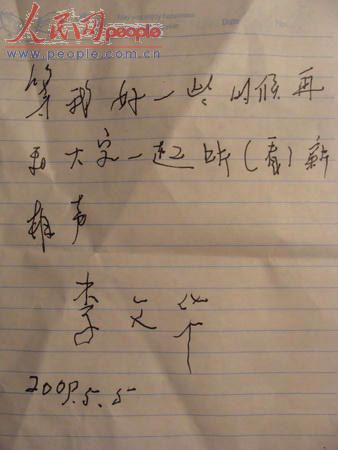 人民网people
www.people.com.cn
等我好一些的时候再
和大家一起听(看)新
相声
李文华
2009.5.5